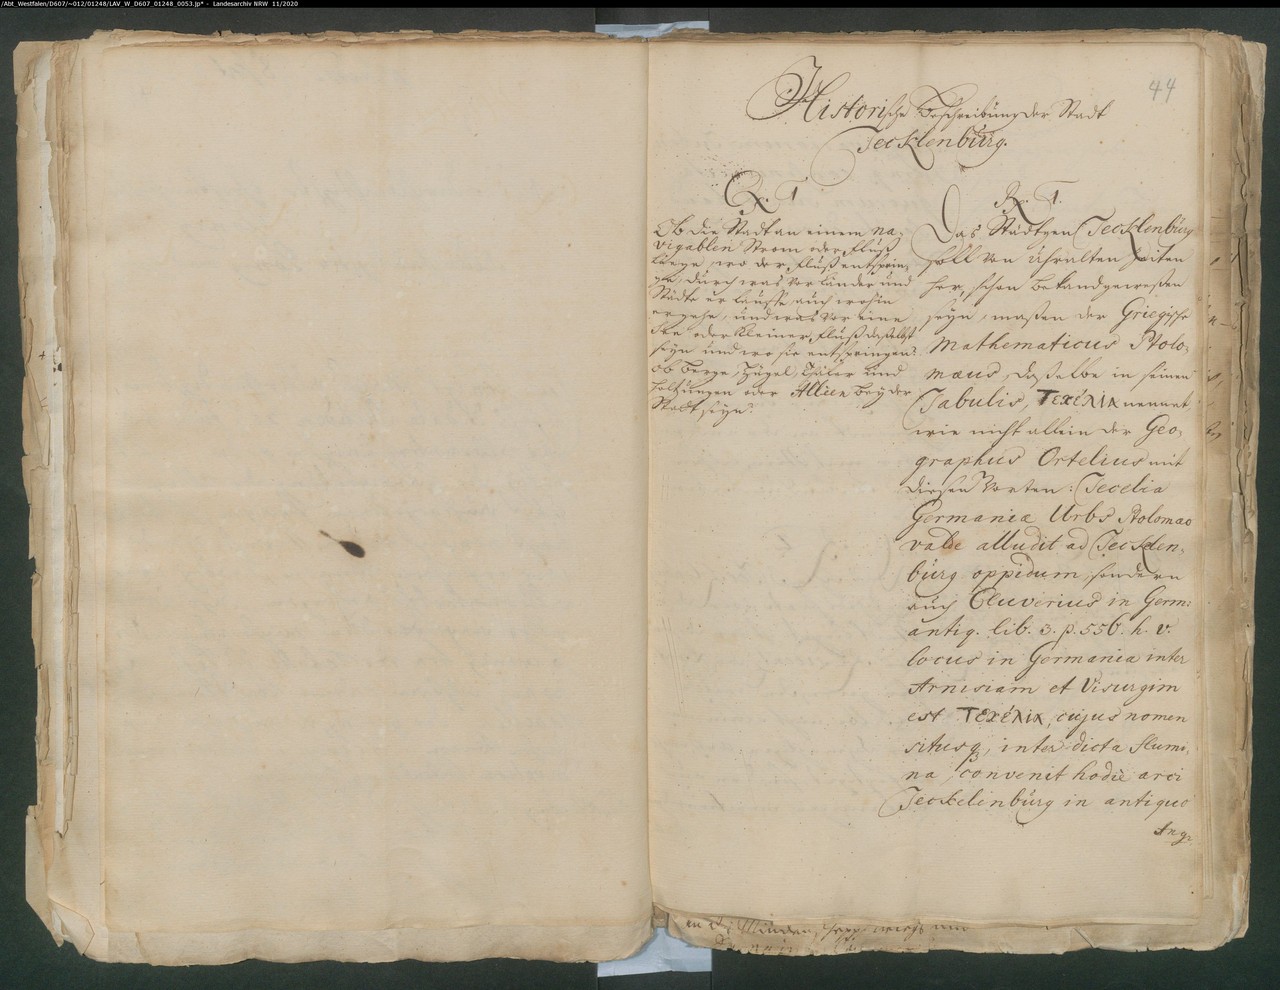 /Abt_Westfalen/D607/~012/01248/LAV_W_D607_01248_0053.jp* - Landesarchiv NRW 11/2020
44
Historische Beschreibung der Stadt
Tecklenburg.
Q. 1.
Ob die Stadt an einem na-
vigablen Strom oder Fluß
liege, wo der Fluß entsprin-
ge, durch was vor länder und
Städte er lauffe, auch wohin
ergehe, und was vor eine
See oder kleiner Fluß daselbst
seyn und wo sie entspringen?
Ob Berge, Hügel, Thäler und
Holtzungen oder Alléen bey der
Stadt seyn?
Rx. 1.
Das Städtgen Tecklenburg
soll von Uhralten Zeiten
her, schon bekand gewesen
seyn, maßen der Griegische
Mathematicus Ptolo-
mæus, daßelbe in seinen
Tabulis, Τεκέλια nennet
wie nicht allein der Geo-
graphus Ortelius mit
diesen Worten: Tecelia
Germaniæ Urbs Ptolomæo
valde alludit ad Tecklen-
burg oppidum, sondern
auch Cluverius in Germ:
antiq. lib. 3. p. 556. h. v.
locus in Germania inter
Amisiam et Visurgim
est Τεκέλια, cujus nomen
situsq, inter dicta flumi-
na, convenit hodie arci
Teckelinburg in antiquo
Ang-